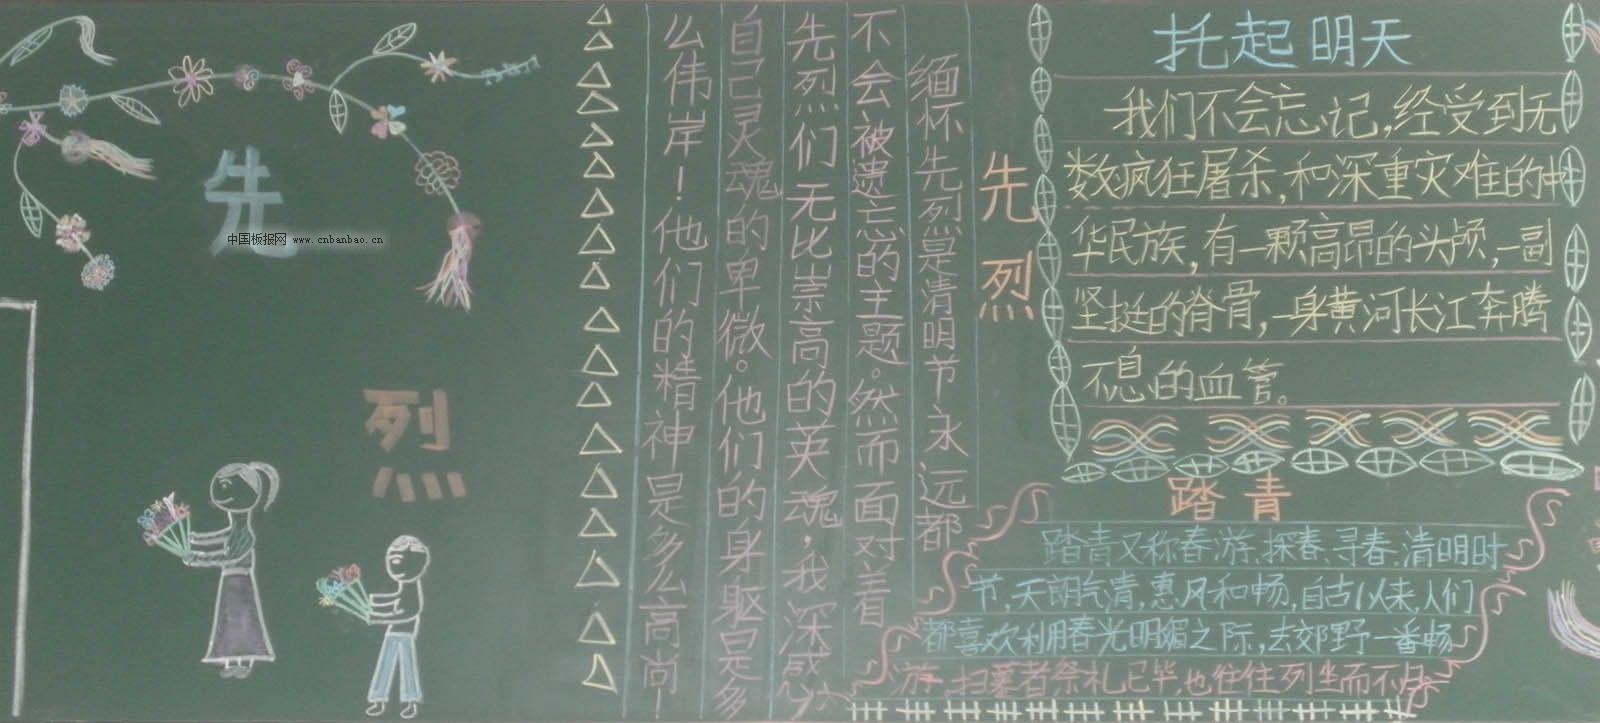 先
烈
中国板报网 www.cnbanbao.cn
先烈
缅怀先烈是清明节永远都
不会被遗忘的主题。然而面对着
先烈们无比崇高的英魂，我深感
自己灵魂的卑微。他们的身躯是多
么伟岸！他们的精神是多么高尚！
托起明天
我们不会忘记,经受到无
数疯狂屠杀,和深重灾难的中
华民族,有一颗高昂的头颅,一副
坚挺的脊骨,一身黄河长江奔腾
不息的血管。
踏青
踏青又称春游,探春、寻春,清明时
节,天朗气清,惠风和畅,自古以来,人们
都喜欢利用春光明媚之际,去郊野一番畅
游,扫墓者祭礼已毕,也往往列坐而不